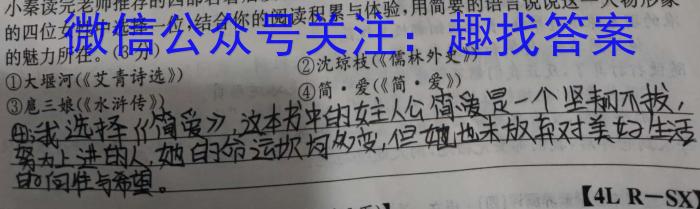 小秦读完老师推荐的四部名著
的四位女性中选择一位,结合你的阅读积累与体验,用简要的语言说说这一人物形象
的魅力所在。(3分)
微信公众号关注:趣找答案
①大堰河(《艾青诗选》) ②沈琼枝(《儒林外史》)
③扈三娘(《水浒传》) ④简·爱(《简·爱》)
④我选择《简爱》,这本书中的女主人公简爱是一个坚韧不拔,
努力上进的人,她的命运坎坷多变,但她也未放弃对美好生活
的向往与希望。
【4L R-SX】